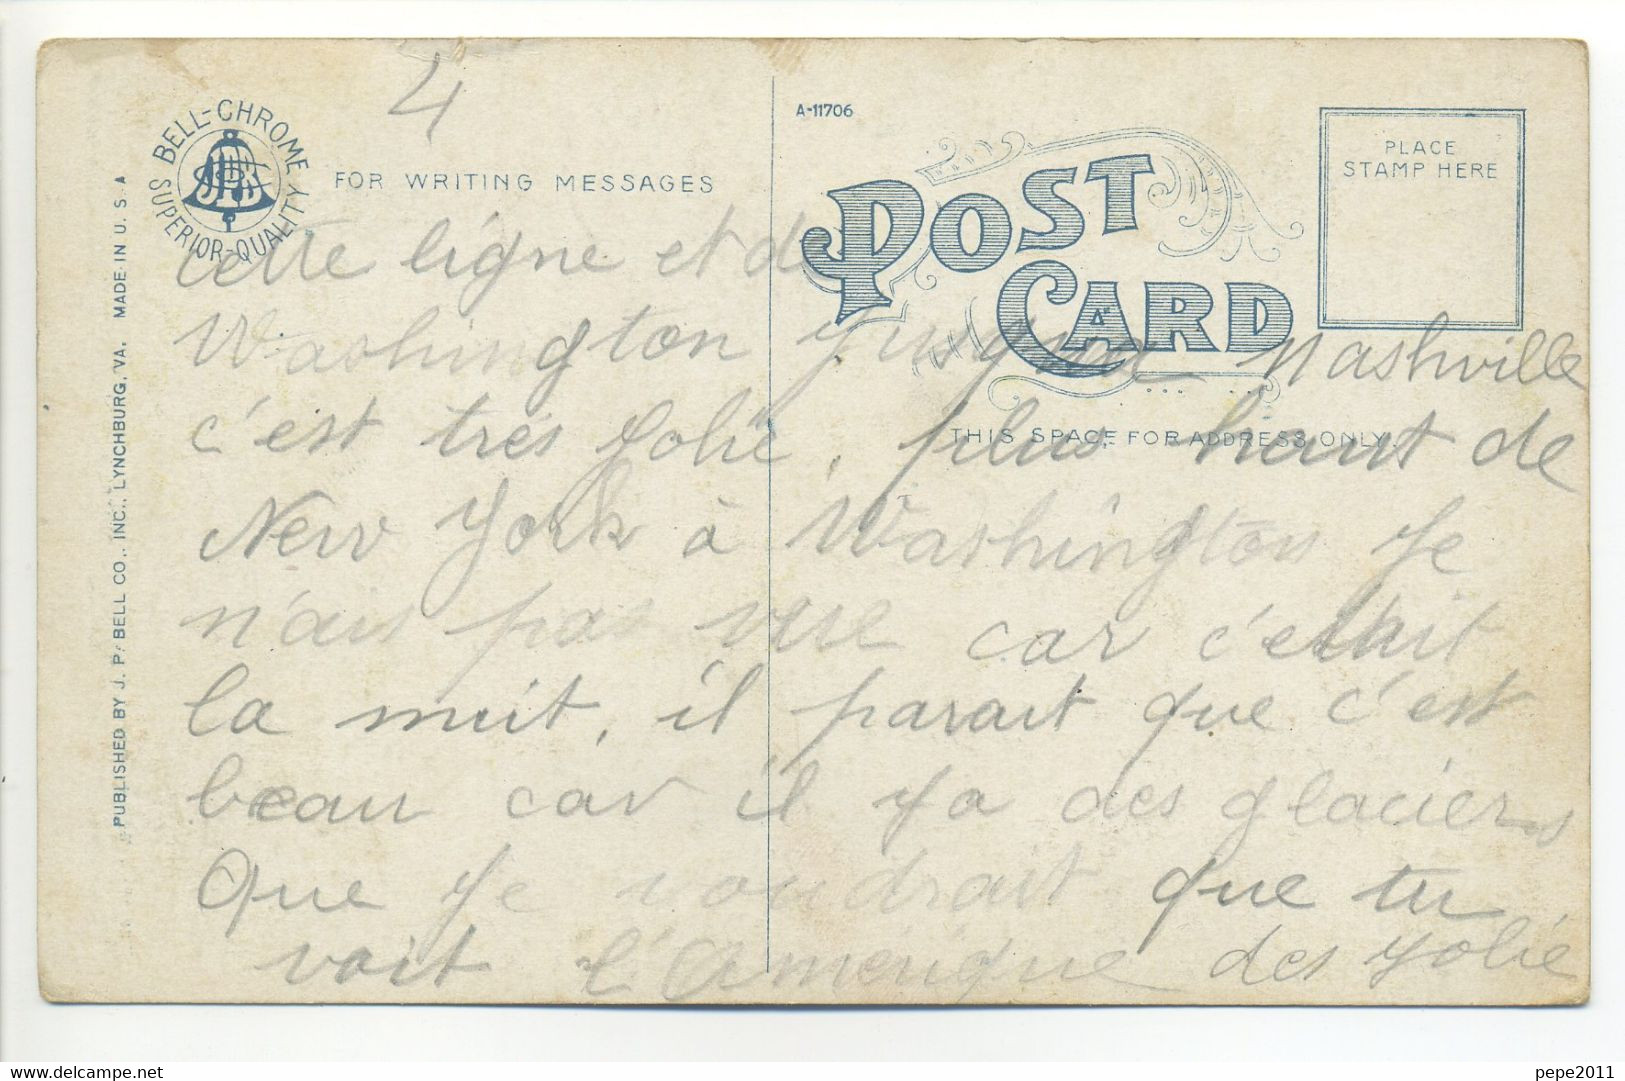 4
A-11706
BELL-CHROME
SUPERIOR-QUALITY
JPB
FOR WRITING MESSAGES
POST
CARD
PLACE
STAMP HERE
THIS SPACE FOR ADDRESS ONLY.
PUBLISHED BY J. P. BELL CO., INC., LYNCHBURG, VA. MADE IN U. S. A
cette ligne et de
Washington Nashville
c'est très jolie, plus haut de
New York à Washington je
n'ais pas vue car c'etait
la nuit, il parait que c'est
beau car il ya des glaciers
Que je voudrait que tu
voit l'Amérique des jolie
pepe2011
www.delcampe.net